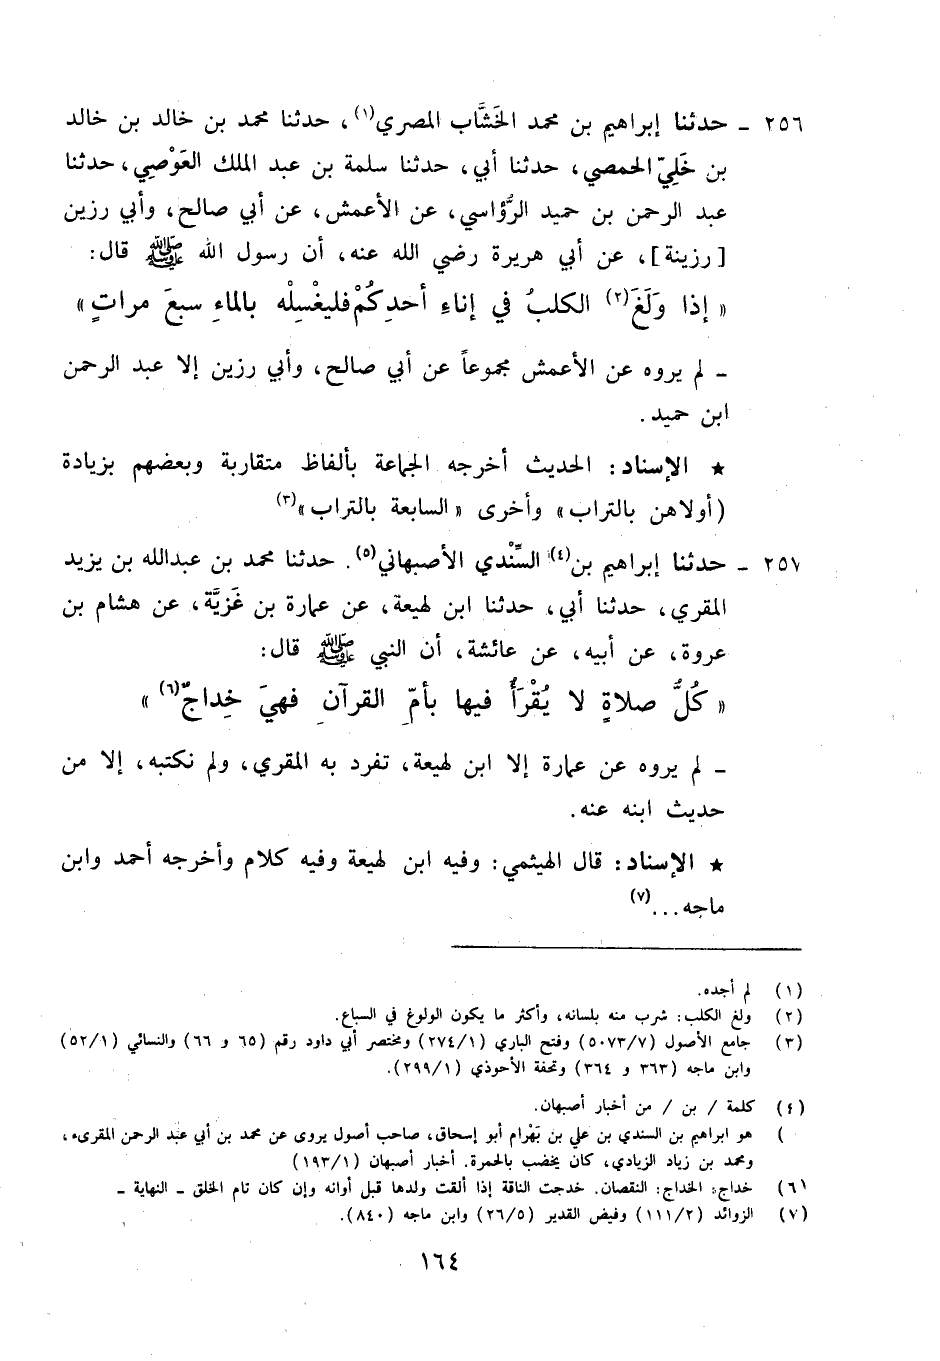 ٢٥٦ - حدثنا إبراهيم بن محمد الخَشَّاب المصري(١)، حدثنا محمد بن خالد بن خالد
بن خَلِيّ الحمصي، حدثنا أبي، حدثنا سلمة بن عبد الملك العَوْصِي، حدثنا
عبد الرحمن بن حميد الرُّؤاسي، عن الأعمش، عن أبي صالح، وأبي رزين
[رزينة]، عن أبي هريرة رضي الله عنه، أن رسول الله ﷺ قال:
« إذا وَلَغَ(٢) الكلبُ في إناءِ أحدِكُمْ فليغْسِلْه بالماءِ سبعَ مراتٍ »
- لم يروه عن الأعمش مجموعاً عن أبي صالح، وأبي رزين إلا عبد الرحمن
ابن حميد.
★ الإسناد: الحديث أخرجه الجماعة بألفاظ متقاربة وبعضهم بزيادة
(أولاهن بالتراب» وأخرى «السابعة بالتراب»(٣)
٢٥٧ - حدثنا إبراهيم بن(٤) السِّنْدي الأصبهاني(٥). حدثنا محمد بن عبدالله بن يزيد
المقري، حدثنا أبي، حدثنا ابن لهيعة، عن عمارة بن غَزِيَّة، عن هشام بن
عروة، عن أبيه، عن عائشة، أن النبي ﷺ قال:
« كُلُّ صلاةٍ لا يُقْرَأُ فيها بأمِّ القرآنِ فهيَ خِداجٌ(٦) »
- لم يروه عن عمارة إلا ابن لهيعة، تفرد به المقري، ولم نكتبه، إلا من
حديث ابنه عنه.
★ الإسناد: قال الهيثمي: وفيه ابن لهيعة وفيه كلام وأخرجه أحمد وابن
ماجه...(٧)
(١) لم أجده.
(٢) ولغ الكلب: شرب منه بلسانه، وأكثر ما يكون الولوغ في السباع.
(٣) جامع الأصول (٥٠٧٣/٧) وفتح الباري (٢٧٤/١) ومختصر أبي داود رقم (٦٥ و ٦٦) والنسائي (٥٢/١)
وابن ماجه (٣٦٣ و ٣٦٤) وتحفة الأحوذي (٢٩٩/١).
(٤) كلمة / بن / من أخبار أصبهان.
) هو ابراهيم بن السندي بن علي بن بَهْرام أبو إسحاق، صاحب أصول يروى عن محمد بن أبي عبد الرحمن المقرىء،
ومحمد بن زياد الزيادي، كان يخضب بالحمرة. أخبار أصبهان (١٩٣/١)
(٦) خداج: الخداج: النقصان. خدجت الناقة إذا ألقت ولدها قبل أوانه وإن كان تام الخلق - النهاية -
(٧) الزوائد (١١١/٢) وفيض القدير (٢٦/٥) وابن ماجه (٨٤٠).
١٦٤